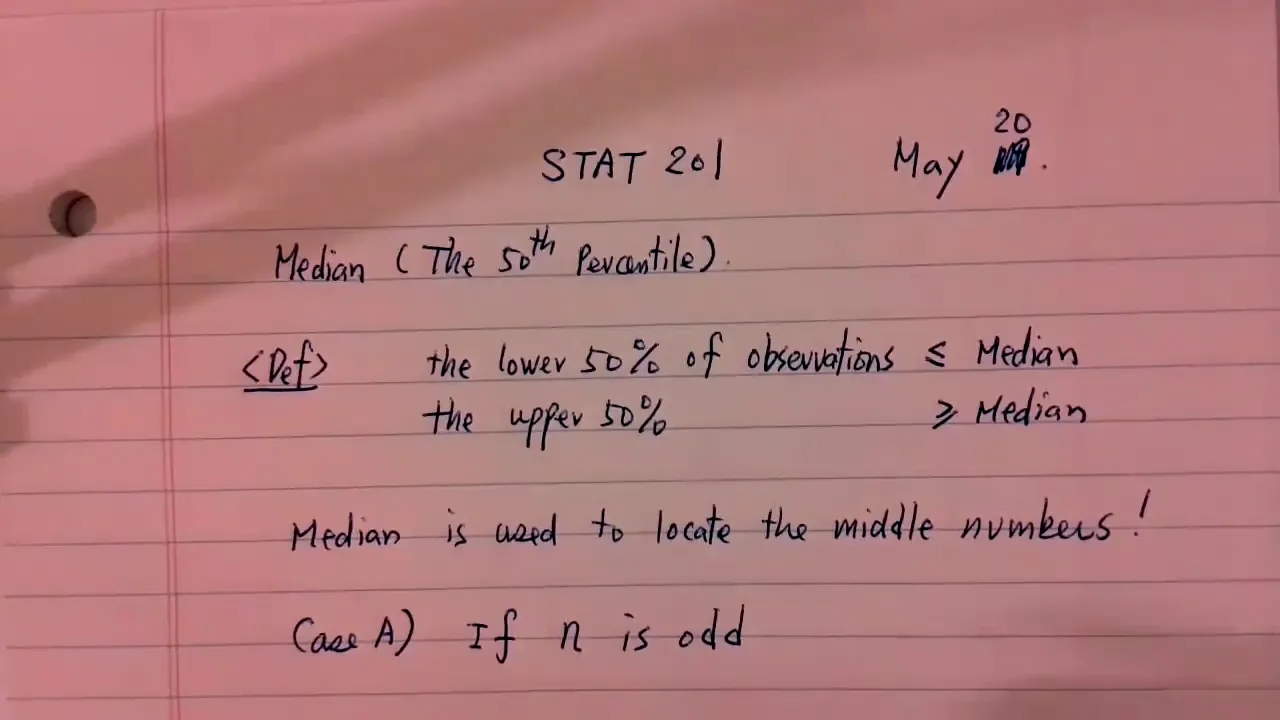 STAT 201 May 20.
Median (The 50th Percentile).
<Def> the lower 50% of observations ≤ Median
the upper 50% ≥ Median
Median is used to locate the middle numbers!
Case A) If n is odd